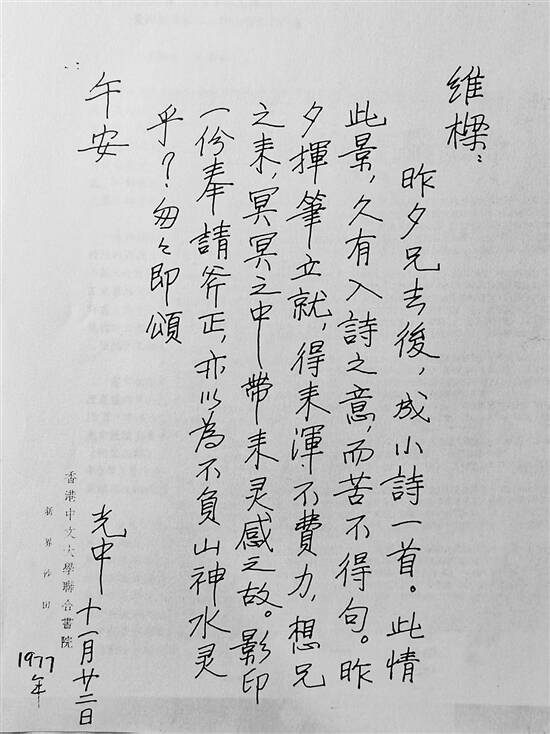 維樑：
昨夕兄去後，成小詩一首。此情
此景，久有入詩之意，而苦不得句。昨
夕揮筆立就，得来渾不費力，想兄
之来，冥冥之中帶来灵感之故。影印
一份奉請斧正，亦以為不負山神水灵
乎？匆々即頌
午安
光中 十一月廿二日
1977年
香港中文大學聯合書院
新界沙田